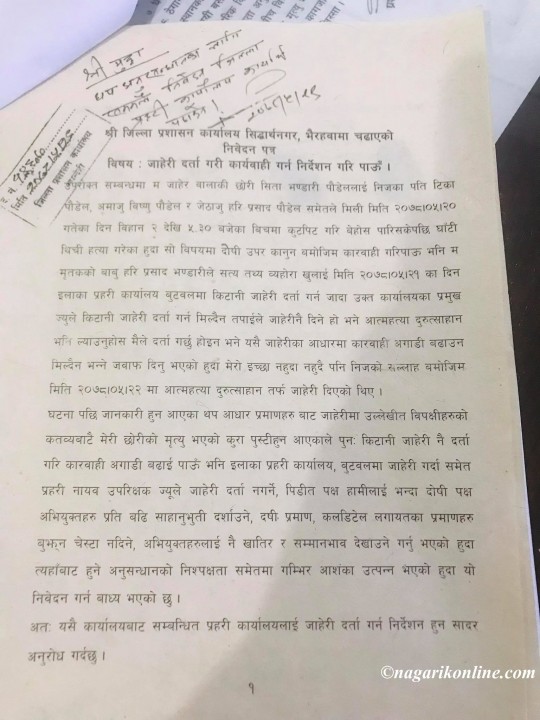 श्री मुद्दा
श्री जिल्ला प्रशासन कार्यालय सिद्धार्थनगर, भैरहवामा चढाएको
निवेदन पत्र
विषय : जाहेरी दर्ता गरी कार्यवाही गर्न निर्देशन गरि पाऊँ ।
उपरोक्त सम्बन्धमा म जाहेर वालाकी छोरी सिता भण्डारी पौडेललाई निजका पति टिका
पौडेल, अमाजु विष्णु पौडेल र जेठाजु हरि प्रसाद पौडेल समेतले मिली मिति २०७८।०५।२०
गतेका दिन बिहान २ देखि ५.३० बजेका बिचमा कुटपिट गरि बेहोस पारिसकेपछि घाँटी
थिची हत्या गरेका हुदा सो विषयमा दोषी उपर कानुन बमोजिम कारवाही गरिपाऊ भनि म
मृतकको बाबु हरि प्रसाद भण्डारीले सत्य तथ्य व्यहोरा खुलाई मिति २०७८।०५।२१ का दिन
इलाका प्रहरी कार्यालय बुटवलमा किटानी जाहेरी दर्ता गर्न जादा उक्त कार्यालयका प्रमुख
ज्यूले किटानी जाहेरी दर्ता गर्न मिल्दैन तपाईले जाहेरीनै दिने हो भने आत्महत्या दुरुत्साहान
भनि ल्याउनुहोस मैले दर्ता गर्छु होइन भने यसै जाहेरीका आधारमा कारवाही अगाडी बढाउन
मिल्दैन भन्ने जवाफ दिनु भएको हुदा मेरो इच्छा नहुदा नहुदै पनि निजको सल्लाह बमोजिम
मिति २०७८।०५।२२ मा आत्महत्या दुरुत्साहान तर्फ जाहेरी दिएको थिए ।
घटना पछि जानकारी हुन आएका थप आधार प्रमाणहरु बाट जाहेरीमा उल्लेखीत विपक्षीहरुको
कतव्यबाटै मेरी छोरीको मृत्यु भएको कुरा पुस्टीहुन आएकाले पुनः किटानी जाहेरी नै दर्ता
गरि कारवाही अगाडी बढाई पाऊँ भनि इलाका प्रहरी कार्यालय, बुटवलमा जाहेरी गर्दा समेत
प्रहरी नायव उपरिक्षक ज्यूले जाहेरी दर्ता नगर्ने, पिडीत पक्ष हामीलाई भन्दा दोषी पक्ष
अभियुक्तहरु प्रति बढि साहानुभुती दर्शाउने, दषी प्रमाण, कलडिटेल लगायतका प्रमाणहरु
बुझ्न चेस्टा नदिने, अभियुक्तहरुलाई नै खातिर र सम्मानभाव देखाउने गर्नु भएको हुदा
त्यहाँबाट हुने अनुसन्धानको निश्पक्षता समेतमा गम्भिर आशंका उत्पन्न भएको हुदा यो
निवेदन गर्न बाध्य भएको छु ।
अतः यसै कार्यालयबाट सम्बन्धित प्रहरी कार्यालयलाई जाहेरी दर्ता गर्न निर्देशन हुन सादर
अनुरोध गर्दछु ।
©nagarikonline.com
१